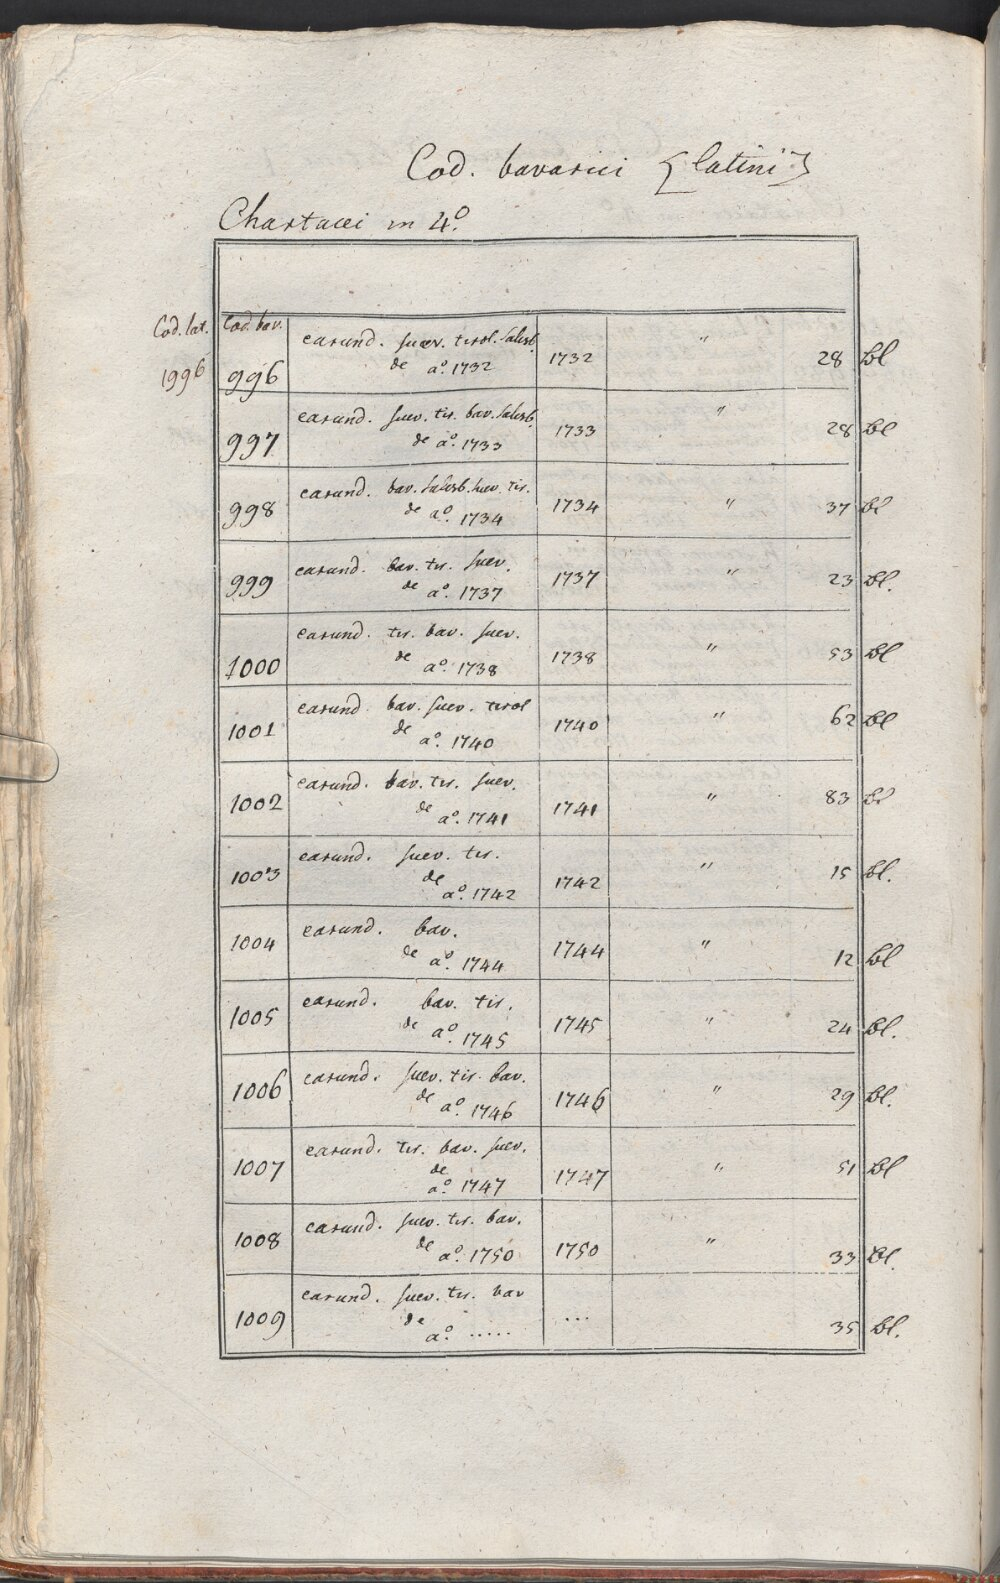 Cod. bavarici {latini}
Chartacei in 4.º
Cod. lat. Cod. bav.
1996 996 earund. suev. tirol. Salisb. 1732 " 28 bl
de aº. 1732
997 earund. suev. tir. bav. Salisb. 1733 " 28 bl
de aº. 1733
998 earund. bav. Salisb. suev. tir. 1734 " 37 bl
de aº. 1734
999 earund. bav. tir. suev. 1737 " 23 bl.
de aº. 1737
1000 earund. tir. bav. suev. 1738 " 53 bl
de aº. 1738
1001 earund. bav. suev. tirol 1740 " 62 bl
de aº. 1740
1002 earund. bav. tir. suev. 1741 " 83 bl
de aº. 1741
1003 earund. suev. tir. 1742 " 15 bl.
de aº. 1742
1004 earund. bav. 1744 " 12 bl
de aº. 1744
1005 earund. bav. tir. 1745 " 24 bl.
de aº. 1745
1006 earund. suev. tir. bav. 1746 " 29 bl.
de aº. 1746
1007 earund. tir. bav. suev. 1747 " 51 bl
de aº. 1747
1008 earund. suev. tir. bav. 1750 " 33 bl.
de aº. 1750
1009 earund. suev. tir. bav ... 35 bl.
de aº. .....